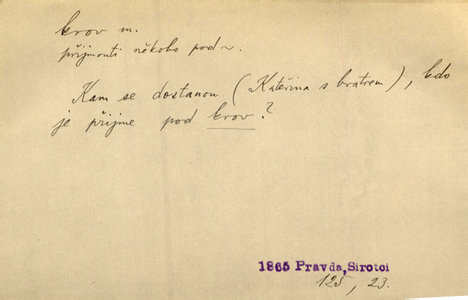 krov m.
přijmouti někoho pod ~.
Kam se dostanou (Kateřina s bratrem), kdo
je přijme pod krov?
1865 Pravda, Sirotci
125, 23.